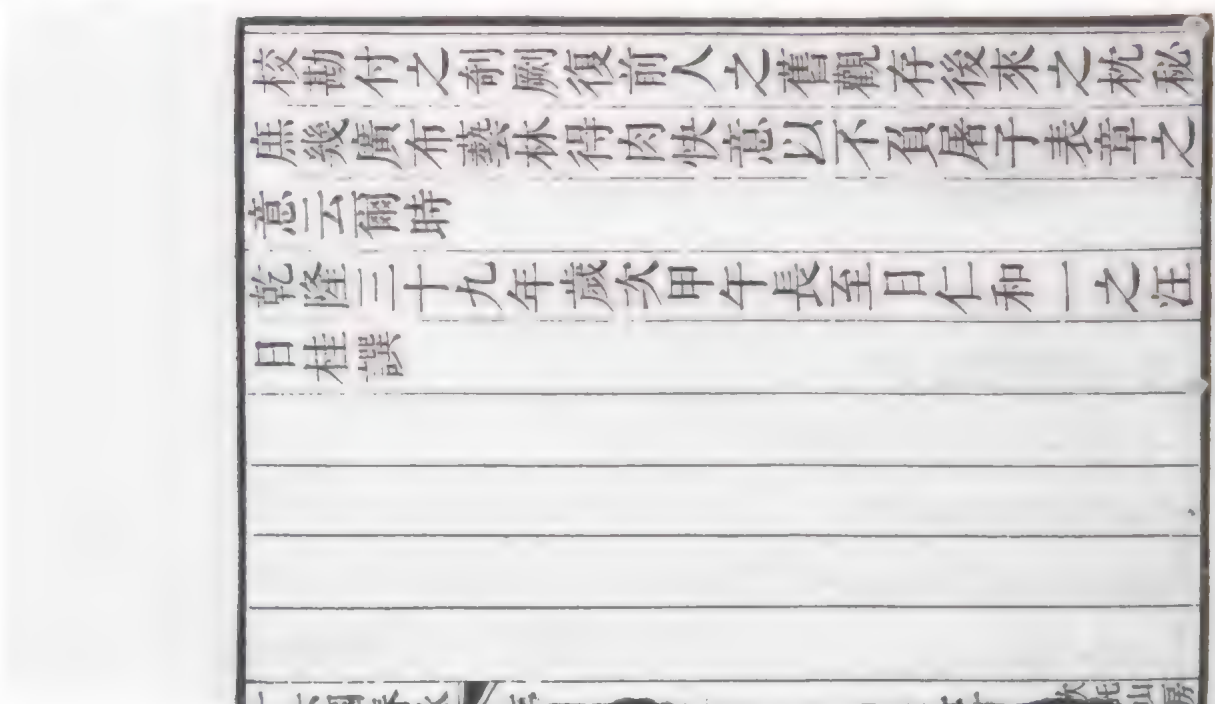 校勘付之剞劂復前人之舊觀存後來之枕秘
庶幾廣布藝林得肉快意以不負屠子表章之
意云爾時
乾隆三十九年歲次甲午長至日仁和一之汪
日桂譔